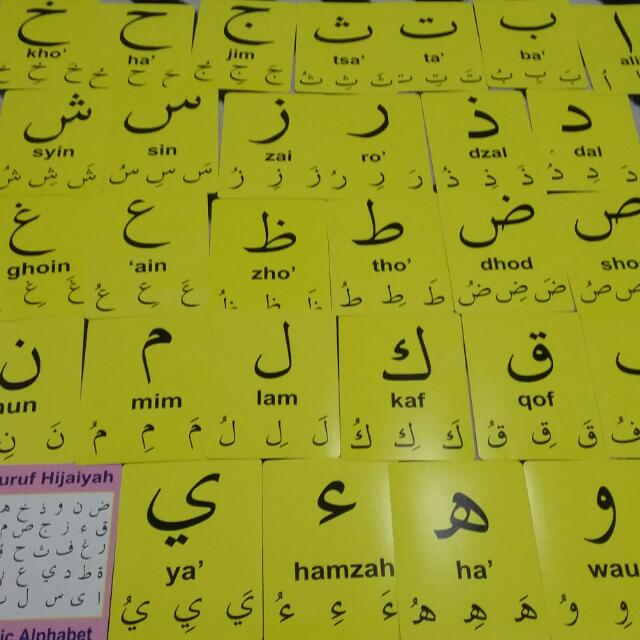 ا ب ت ث ج ح خ
kho' ha' jim tsa' ta' ba' ali
أَ بَ بِ بُ تَ تِ تُ ثَ ثِ ثُ جَ جِ جُ حَ حِ حُ خَ خِ خُ
د ذ ر ز س ش
syin sin zai ro' dzal dal
دَ دِ دُ ذَ ذِ ذُ رَ رِ رُ زَ زِ زُ سَ سِ سُ شَ شِ شُ
ص ض ط ظ ع غ
ghoin 'ain zho' tho' dhod sho
صِ صُ ضَ ضِ ضُ طَ طِ طُ ظَ ظِ ظُ عَ عِ عُ غَ غِ
ق ك ل م ن
nun mim lam kaf qof
فُ قَ قِ قُ كَ كِ كُ لَ لِ لُ مَ مِ مُ نَ نِ
و ه ء ي
ya' hamzah ha' wau
وِ وُ هَ هِ هُ ءَ ءِ ءُ يَ يِ يُ
uruf Hijaiyah
ض ن و ذ خ ه
ق ء ز ج ص م
ر غ ف ث ح
ة ط د ي ع
ا ى س ل
ic Alphabet